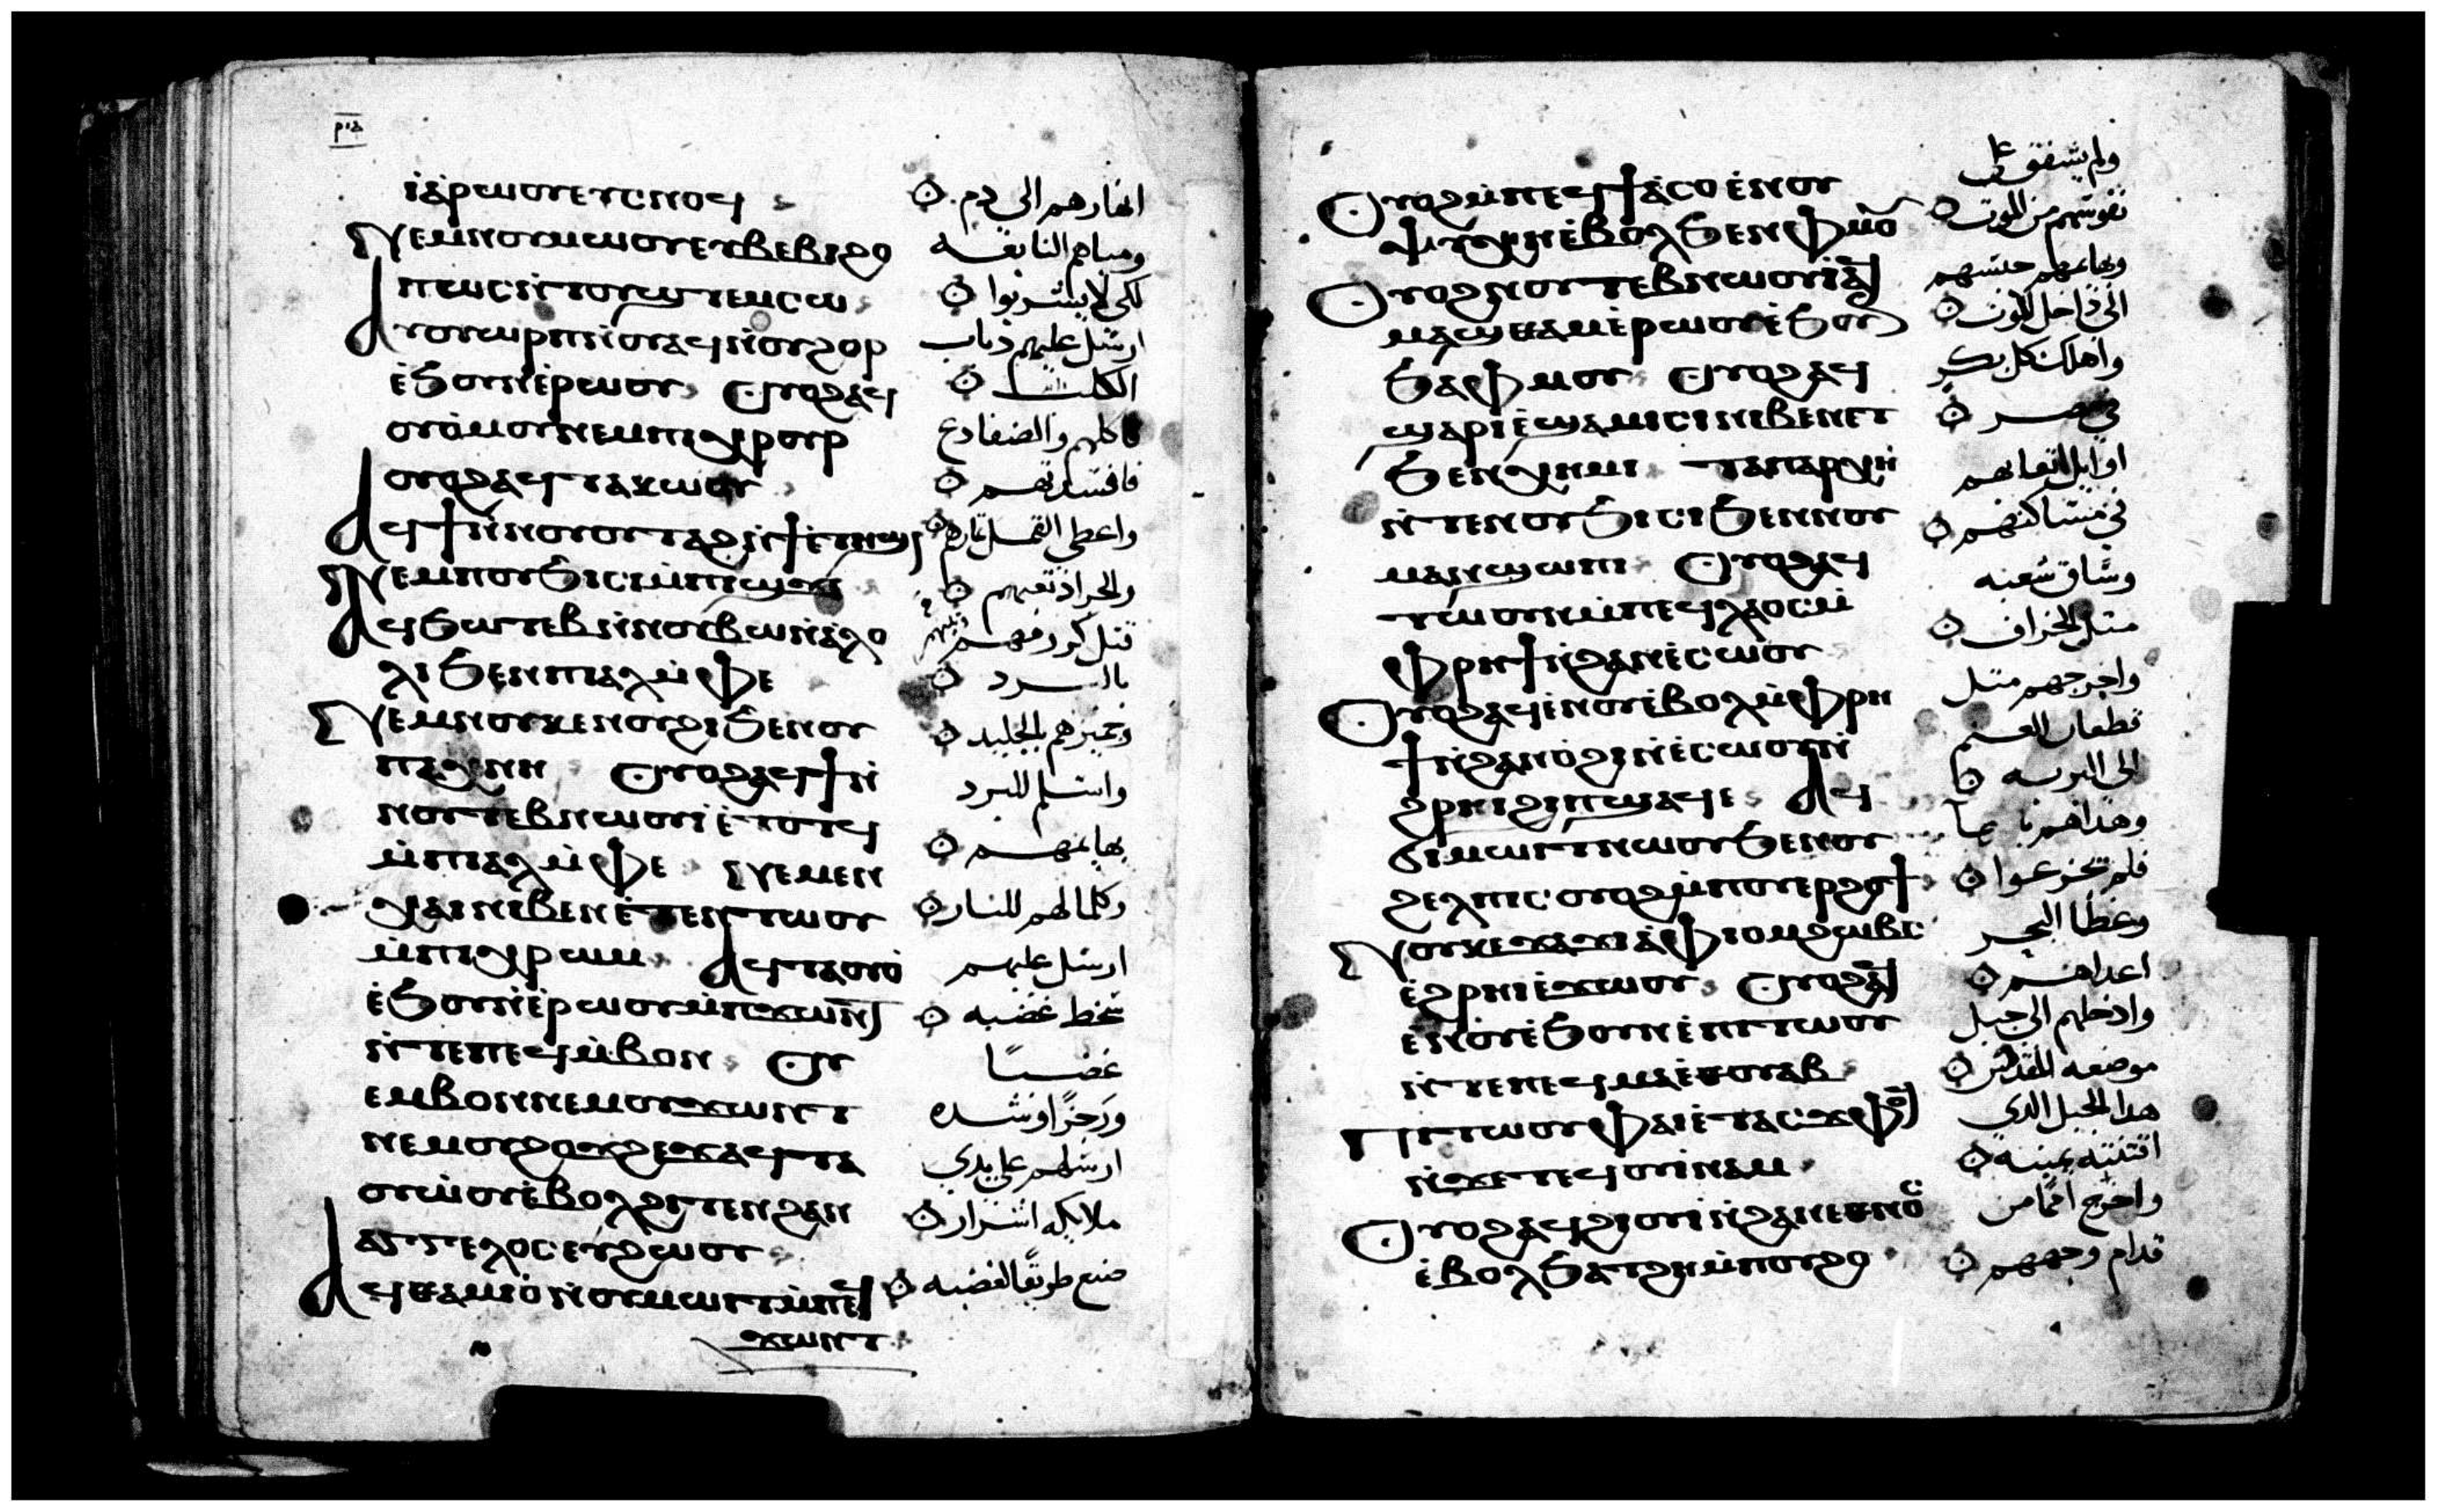 ⲣⲓⲇ
ⲓⲁⲣⲱⲟⲩⲉⲩⲥⲛⲟϥ
ⲛⲉⲙⲛⲟⲩⲙⲱⲟⲩⲉⲧⲃⲉⲃⲓϩⲟ
ⲡⲱⲥⲛ̀ⲧⲟⲩϣⲧⲉⲙⲥⲱ
ⲁϥⲟⲩⲱⲣⲡⲛ̀ⲟⲩⲁϥⲛ̀ⲟⲩϩⲟⲣ
ⲉ̀ϧⲟⲩⲛⲉ̀ⲣⲱⲟⲩ ⲟⲩⲟϩⲁϥ
ⲟⲩⲟ̀ⲙⲟⲩⲛⲉⲙⲡⲓⲭⲣⲟⲩⲣ
ⲟⲩⲟϩⲁϥⲧⲁⲕⲱⲟⲩ
ⲁϥϯⲛ̀ⲛⲟⲩⲟⲩⲧⲁϩ
ⲛⲉⲙⲛⲟⲩϧⲓⲥⲓⲙ̀ⲡⲓϣϫⲉ
ⲁϥϧⲱⲧⲉⲃⲛ̀ⲛⲟⲩⲃⲱⲛ̀ⲁ̀ⲗⲟ
ⲗⲓ ϧⲉⲛⲡⲓⲁⲗⲙ̀ⲫⲉ
ⲛⲉⲙⲛⲟⲩⲕⲉⲛⲟⲩϩⲓ ϧⲉⲛⲟⲩ
ⲡⲁⲭⲛⲏ ⲟⲩⲟϩⲁϥϯⲛ̀
ⲛⲟⲩⲧⲉⲃⲛⲱⲟⲩⲓ ⲉ̀ⲧⲟⲧϥ
ⲙ̀ⲡⲓⲁⲗⲙ̀ⲫⲉ ⲛⲉⲙⲉⲛ
ⲭⲁⲓⲛⲓⲃⲉⲛ ⲉ̀ⲧⲉⲛⲧⲱⲟⲩ
ⲙ̀ⲡⲓⲭⲣⲱⲙ ⲁϥⲧⲁⲟⲩⲟ̀
ⲉ̀ϧⲟⲩⲛⲉ̀ⲣⲱⲟⲩⲙ̀ⲡϫⲱⲛⲧ
ⲛ̀ⲧⲉⲡⲉϥⲙ̀ⲃⲟⲛ ⲟⲩ
ⲉⲙⲃⲟⲛⲛⲉⲙⲟⲩϫⲱⲛⲧ
ⲛⲉⲙⲟⲩϩⲟϫϩⲉϫⲁϥⲧⲁ
ⲟⲩⲱ̀ⲟⲩⲉ̀ⲃⲟⲗϩⲓⲧⲉⲛϩⲁⲛ
ⲁⲅⲅⲉⲗⲟⲥⲉⲩϩⲱⲟⲩ
ⲁϥⲑⲁⲙⲓⲟ̀ⲛ̀ⲟⲩⲙⲱⲓⲧⲙ̀ⲡⲉϥ
ϫⲱⲛⲧ
انهارهم الى دم
ومياهم النابعه
لكى لا يشربوا
ارسل عليهم ذباب
الكلب
فاكلهم والضفادع
فافسدتهم
واعطى القمل ثمارهم
والجراد تعبهم
قتل كرومهم
بالبرد
وتميزهم بالجليد
واسلم للبرد
بهايمهم
وكلما لهم للنار
ارسل عليهم
سخط غضبه
غضبًا
ورجزًا وشده
ارسلهم على يدى
ملايكه اشرار
صنع طريقًا لغضبه
ⲟⲩⲟϩⲙ̀ⲡⲉϥϯⲁ̀ⲥⲟⲉ̀ⲛⲟⲩ
ⲯⲩⲭⲏⲉ̀ⲃⲟⲗϧⲉⲛⲫⲙⲟⲩ
ⲟⲩⲟϩⲛⲟⲩⲧⲉⲃⲛⲱⲟⲩⲓⲁϥ
ⲙⲁϣⲑⲁⲙⲉ̀ⲣⲱⲟⲩⲉ̀ϧⲟⲩⲛ
ϧⲁⲫⲙⲟⲩ ⲟⲩⲟϩⲁϥ
ϣⲁⲣⲓⲉ̀ϣⲁⲙⲓⲥⲓⲛⲓⲃⲉⲛⲉⲧ
ϧⲉⲛⲭⲏⲙⲓ ⲧⲁⲡⲁⲣⲭⲏ
ⲛ̀ⲧⲉⲛⲟⲩϧⲓⲥⲓϧⲉⲛⲛⲟⲩ
ⲙⲁⲛϣⲱⲡⲓ ⲟⲩⲟϩⲁϥ
ⲧⲱⲟⲩⲛⲙ̀ⲡⲉϥⲗⲁⲟⲥⲙ̀
ⲫⲣⲏϯⲛ̀ϩⲁⲛⲉ̀ⲥⲱⲟⲩ
ⲟⲩⲟϩⲁϥⲉ̀ⲛⲟⲩⲉ̀ⲃⲟⲗⲙ̀ⲫⲣⲏ
ϯⲛ̀ϩⲁⲛⲟ̀ϩⲓⲛ̀ⲉ̀ⲥⲱⲟⲩⲛ̀
ϩⲣⲏⲓϩⲓⲡϣⲁϥⲉ ⲁϥ
ϭⲓⲙⲱⲓⲧⲛⲱⲟⲩϧⲉⲛⲟⲩ
ϩⲉⲗⲡⲓⲥⲟⲩⲟϩⲙ̀ⲡⲟⲩⲉⲣϩⲟϯ
ⲛⲟⲩϫⲁϫⲓⲁ̀ⲫⲓⲟⲙϩⲱⲃⲥ
ⲉ̀ϩⲣⲏⲓⲉ̀ϫⲱⲟⲩ ⲟⲩⲟϩⲁϥ
ⲉⲛⲟⲩⲉ̀ϧⲟⲩⲛⲉ̀ⲡⲧⲱⲟⲩ
ⲛ̀ⲧⲉⲡⲉϥⲙⲁⲉ̀ⲑⲟⲩⲁⲃ
ⲡⲓⲧⲱⲟⲩⲫⲁⲓⲉ̀ⲧⲁⲥϫⲫⲟϥ
ⲛ̀ϫⲉⲧⲉϥⲟⲩⲓ̀ⲛⲁⲙ
ⲟⲩⲟϩⲁϥϩⲓⲟⲩⲓ̀ⲛ̀ϩⲁⲛⲉⲑⲛⲟⲥ
ⲉ̀ⲃⲟⲗϧⲁⲧϩⲏⲙ̀ⲡⲟⲩϩⲟ
ولم يشفق على
نفوسهم من الموت
وبهايمهم حبسهم
الى داخل الموت
واهلك كل بكر
فى مصر
اوايل اتعابهم
فى مساكنهم
وساق شعبه
مثل الخراف
واخرجهم مثل
قطعان الغنم
الى البريه
وهداهم
فلم يجزعوا
وغطا البحر
اعداهم
وادخلهم الى جبل
موضعه المقدس
هدا الجبل الدى
اقتنته يمينه
واخرج اممًا من
قدام وجههم